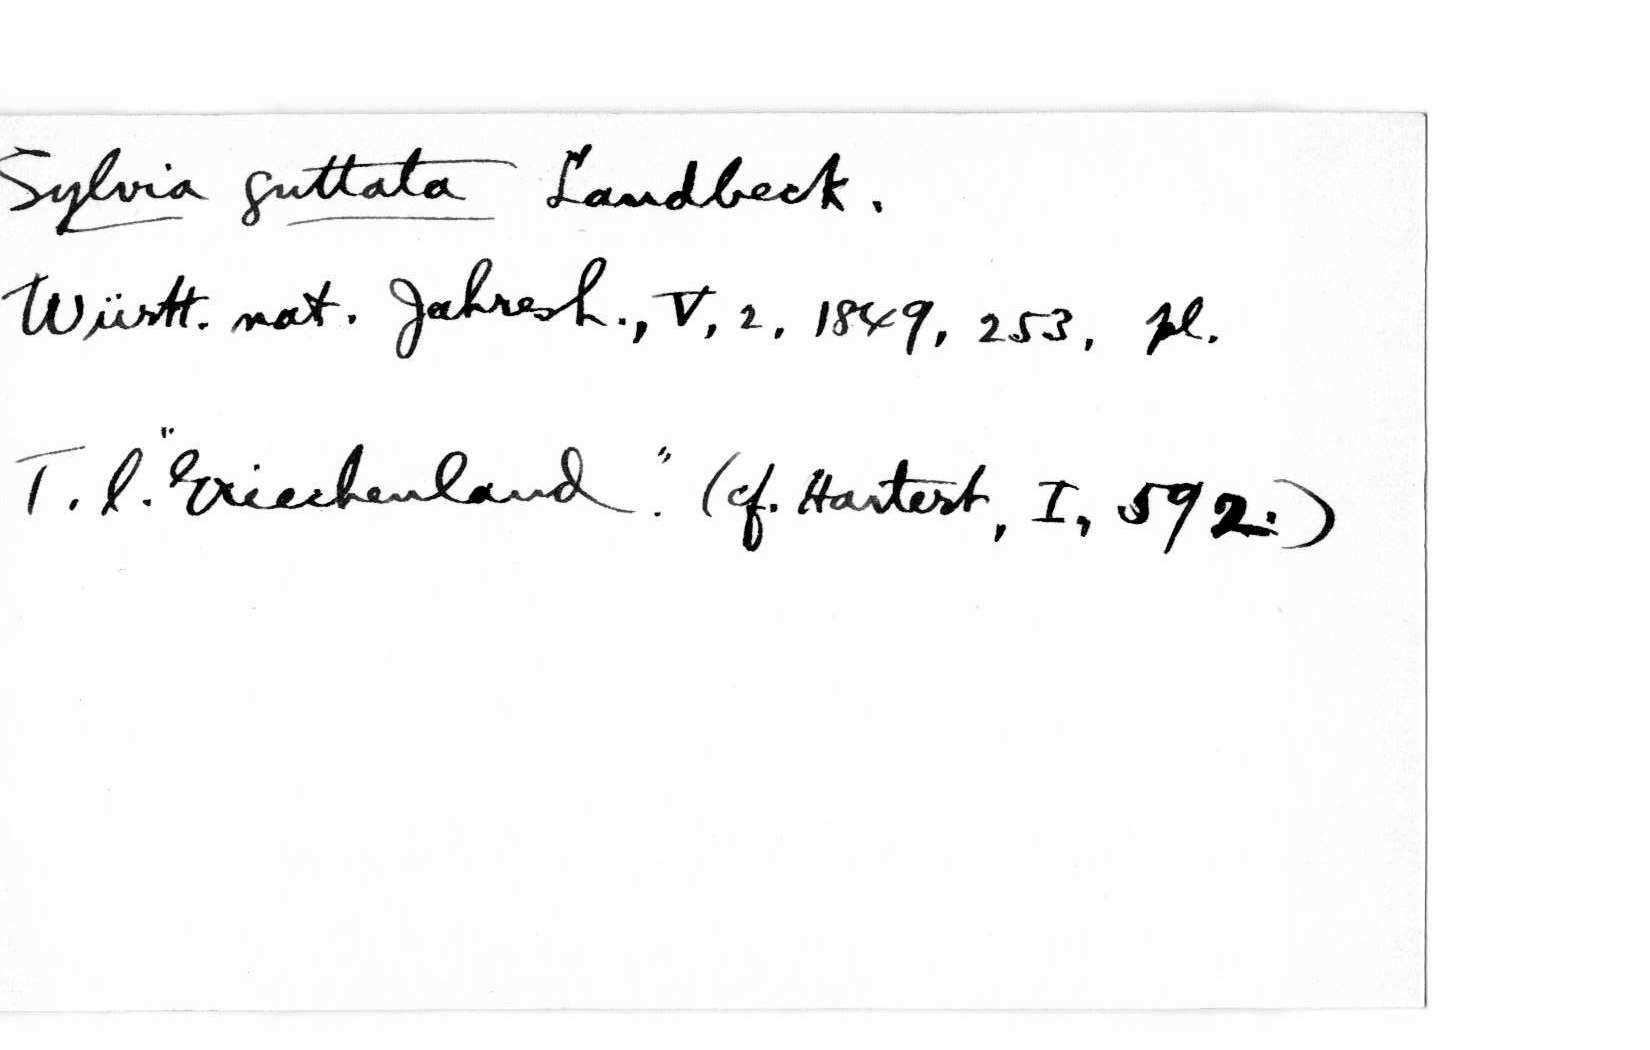 Sylvia guttata Landbeck.
Württ. nat. Jahresh., V, 2, 1849, 253, pl.
T. l. "Griechenland". (cf. Hartert, I, 592.)